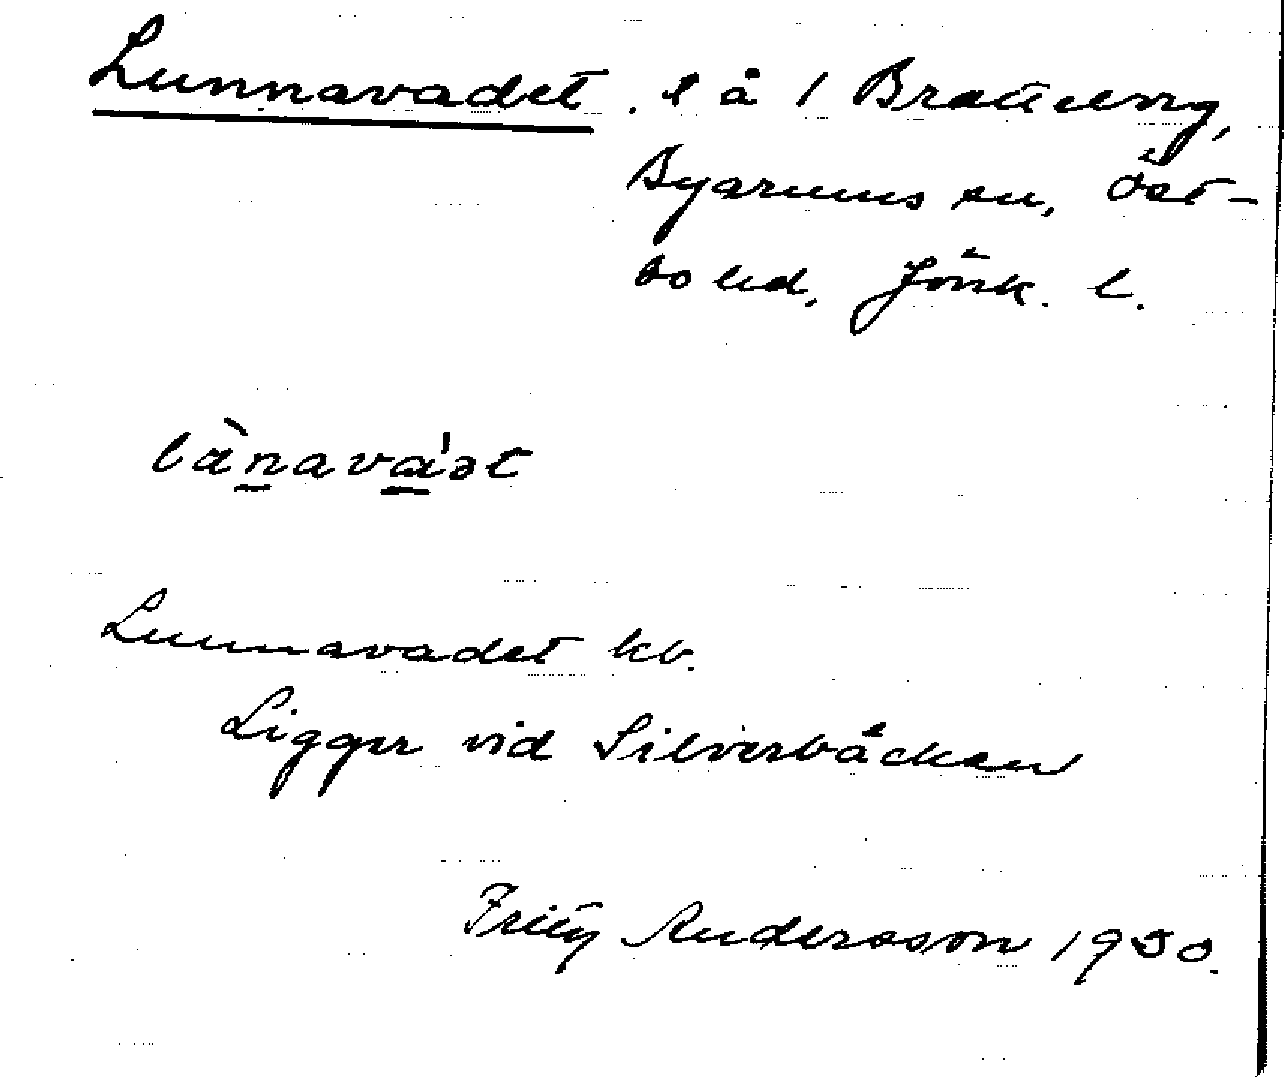 Lunnavadet. l å 1 Bratteng,
Byarums sn, Öst-
bo hd, Jönk. l.
lànavàət
Lunnavadet kb.
Ligger vid Silverbäcken
Fritz Andersson 1950.